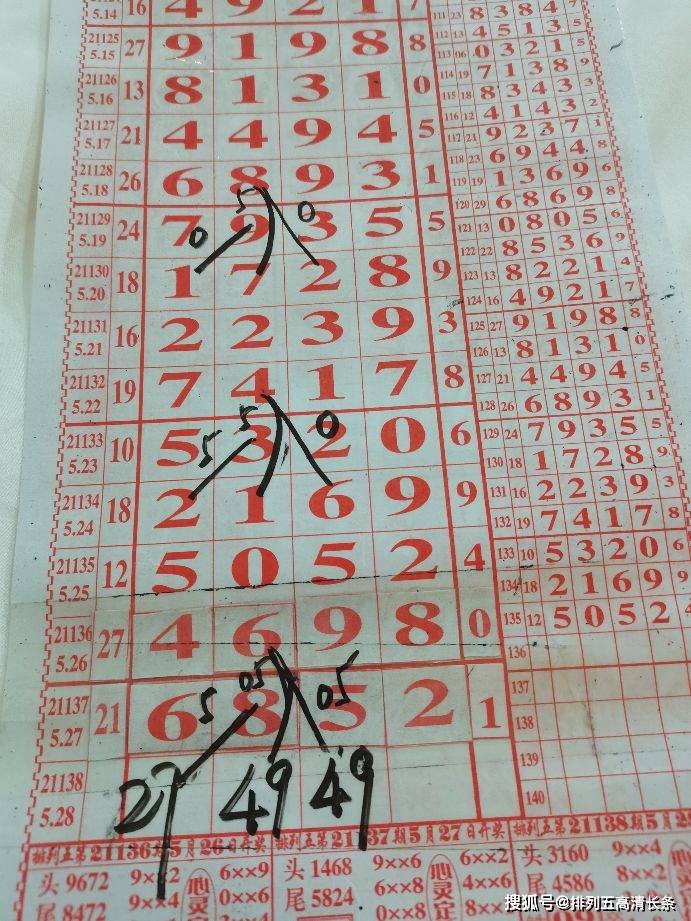 5.14 16 4 9 2 1 7
21125 5.15 27 9 1 9 8 8
21126 5.16 13 8 1 3 1 0
21127 5.17 21 4 4 9 4 5
21128 5.18 26 6 8 9 3 1
5 0
21129 5.19 24 7 9 3 5 5
0
21130 5.20 18 1 7 2 8 9
21131 5.21 16 2 2 3 9 3
21132 5.22 19 7 4 1 7 8
5 0
21133 5.23 10 5 3 2 0 6
5
21134 5.24 18 2 1 6 9 9
21135 5.25 12 5 0 5 2 4
21136 5.26 27 4 6 9 8 0
05 05
21137 5.27 21 6 8 5 2 1
5
21138 5.28 27 49 49
111 23 8 3 8 4 7
112 13 4 5 1 3 5
113 06 0 3 2 1 5
114 19 7 1 3 8 9
115 18 8 3 4 3 3
116 12 4 1 4 3 2
117 21 9 2 3 7 1
118 23 6 9 4 4 8
119 19 1 3 6 9 6
120 29 6 8 6 9 8
121 13 0 8 0 5 6
122 22 8 5 3 6 9
123 13 8 2 2 1 4
124 16 4 9 2 1 7
125 27 9 1 9 8 8
126 13 8 1 3 1 0
127 21 4 4 9 4 5
128 26 6 8 9 3 1
129 24 7 9 3 5 5
130 18 1 7 2 8 9
131 16 2 2 3 9 3
132 19 7 4 1 7 8
133 10 5 3 2 0 6
134 18 2 1 6 9 9
135 12 5 0 5 2 4
136
137
138
139
140
排列五第21136期5月26日开奖
头 9672 9××2 6××9
尾 8472 9××4 0××6
排列五第21137期5月27日开奖
头 1468 9××6 6××2
尾 5824 6××8 4××6
排列五第21138期5月28
头 3160 9××4
尾 4586 8××2
搜狐号@排列五高清长条